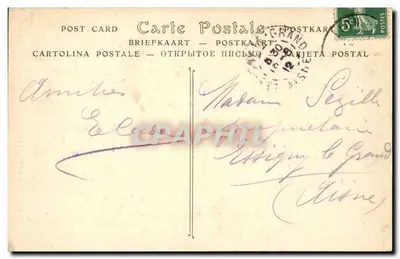 POST CARD Carte Postale POSTKARTE
BRIEFKAART — POSTKAART
CARTOLINA POSTALE — ОТКРЫТОЕ ПИСЬМО TARJETA POSTAL
5c
POSTES
GRAND
8 30
12
AISNE
Amitiés
Madame Sézille
Essigny le Grand
(Aisne)
CPAPHIL